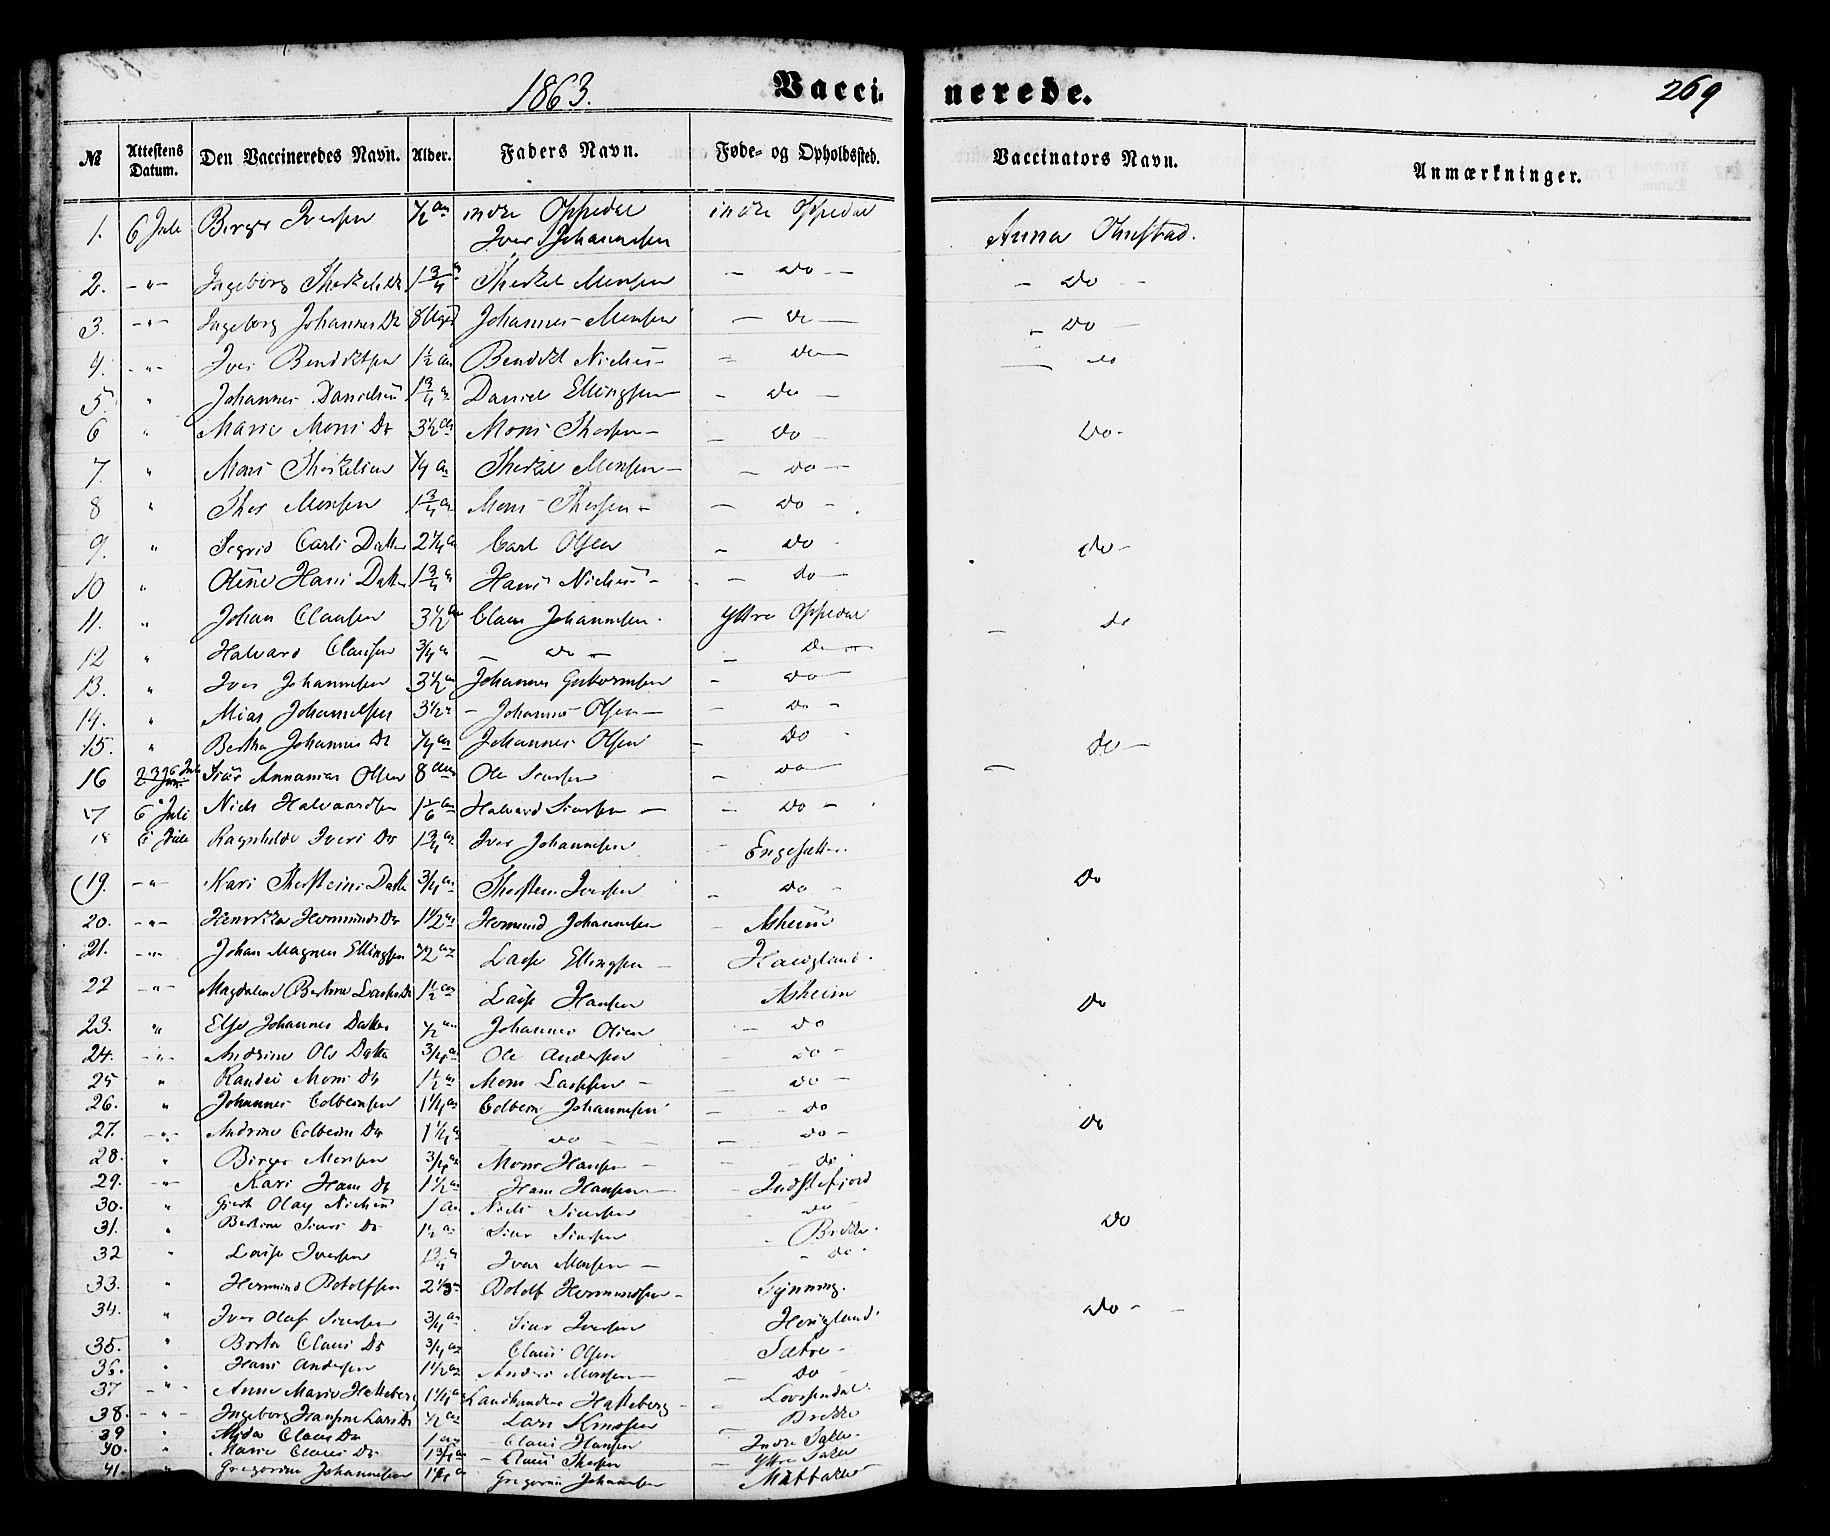 1863. Vaccinerede. 269
№ Attestens Datum. Den Vaccineredes Navn. Alder. Faders Navn. Føde- og Opholdssted. Vaccinators Navn. Anmærkninger.
1. 6 Juli Birger Iversen 1/2 aar indre Oppedal indre Oppedal Anna
Iver Johannesen
2. -"- Ingeborg 1 3/4 Therkel Monsen - do - - do -
3. -"- Ingeborg Johannes Dr 8 Uger Johannes Monsen - do - - do -
4. -"- Iver Bendiktsen 1 1/2 aar Bendikt Nielsen - do - do
5. " Johannes Danielsen 1 3/4 a Daniel Ellingsen - do -
6 " Marie Mons Dr 3 1/2 aar Mons Thorsen - - do - do -
7. " Mons 1/4 aar Therkel Monsen - - do -
8 " Thor Monsen 1 3/4 aar Mons Thorsen - - do -
9. " Sigrid Carls Datter 2 1/4 a Carl Olsen - do - do -
10 " Oline Hans Datter 1 3/4 a Hans Nielsen - - do -
11. " Johan Clausen 3 1/2 aar Claus Johannesen. Yttre Oppedal - do
12 " Halvard Clausen 3/4 a - do - - do -
13. " Iver Johannesen 3 1/2 a Johannes Guttormsen - do -
14. " Johannessen 3 1/2 a - Johannes Olsen - - do -
15. " Bertha Johannes Dr 1/4 aar Johannes Olsen - do - do -
16 Annanias Olsen 8 aar Ole Siursen - do - -
17 6 Juli Niels Halvaardsen 1 1/6 aar Halvard Siursen - - do -
18 6 Juli Ragnhilde Ivers Dr 1 3/4 aar Iver Johannesen - Engesætter.
19. -"- Kari Thorsteins Datter 3/4 aar Thorsten Iversen - do - do
20. -"- Henrikka Hermunds Dr 1 1/2 aar Hermund Johannesen - Asheim
21. -"- Johan Magnus Ellingsen 1/2 aar Lasse Ellingsen -
22 -"- Magdalena Bertine Lasses Dr 1 1/2 aar Lasse Hansen Asheim do
23. " Else Johannes Datter 1/2 aar Johannes Olsen - do
24. -"- Andrine Ols Datter 3/4 aar Ole Andersen - do -
25 " Randei Mons Dr 1 1/2 aar Mons Lassesen - - do -
26. " Johannes Colbensen 1 1/4 aar Colben Johannesen - do
27. -"- Andrine Colbens Dr 1 1/4 a - do - - do - do
28. " Birger Monsen 3/4 aar Mons Hansen - - do
29. -"- Kari Hans Dr 1 1/2 aar Hans Hansen - Indrefjord
30. " Olay Nielsen 1 aar Niels Siursen - do
31. " Bertine Siurs Dr 1 1/2 aar Siur Siursen - Brekke. do
32 " Lasse Iversen 1 3/4 a Iver Monsen - - do -
33. " Hermund Botolfsen 2 1/3 a Botolf Hermundsen -
34. " Iver Olaf Siursen 3/4 aar Siur Iversen do -
35. " Berta Claus Dr 3/4 aar Claus Olsen Sætre -
36. " Hans Andersen 1 1/2 aar Anders Monsen - - do -
37 -"- Anne Marie Hatteberg 1 1/4 a Landhandler Hatteberg -
38. -"- Ingeborg Lars Dr 1/2 aar Lars Knudsen Brekke
39 " Claus Dr 1 aar Claus Hansen Indre
40. " Marie Claus Dr 1 3/4 a - Claus Thorsen - Yttre
41. " Gregorine Johannesen 1 1/4 a Gregorius Johannesen